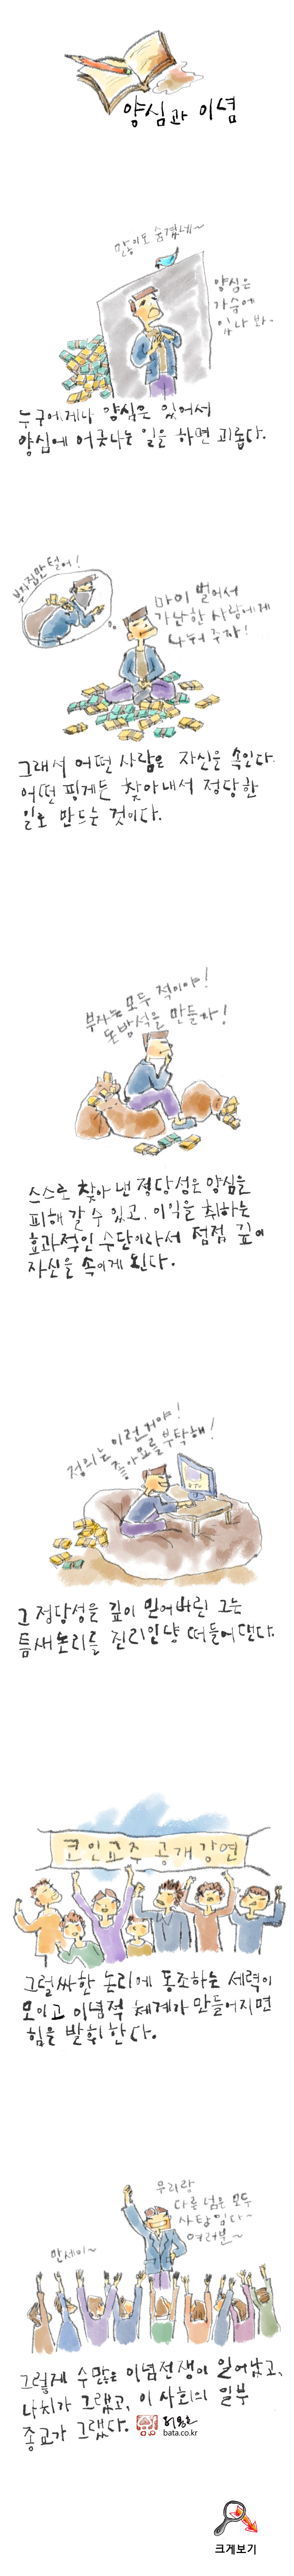 양심과 이념
많이도 숨겼네~
양심은
가슴에
있나 봐~
누구에게나 양심은 있어서
양심에 어긋나는 일을 하면 괴롭다.
부잣집만 털어!
마이 벌어서
가난한 사람에게
나눠 주자!
그래서 어떤 사람은 자신을 속인다.
어떤 핑계든 찾아내서 정당한
일로 만드는 것이다.
부자는 모두 적이야!
돈방석을 만들자!
스스로 찾아 낸 정당성은 양심을
피해 갈 수 있고, 이익을 취하는
효과적인 수단이라서 점점 깊이
자신을 속이게 된다.
정의는 이런 거야!
좋아요를 부탁해!
그 정당성을 깊이 믿어버린 그는
틈새논리를 진리인냥 떠들어댄다.
코인교주 공개강연
그럴싸한 논리에 동조하는 세력이
모이고 이념적 체계가 만들어지면
힘을 발휘한다.
우리랑
다른 넘은 모두
사탄임다~
여러분~
만세이~
그렇게 수많은 이념전쟁이 일어났고,
나치가 그랬고, 이 사회의 일부
종교가 그랬다.
bata.co.kr
크게보기